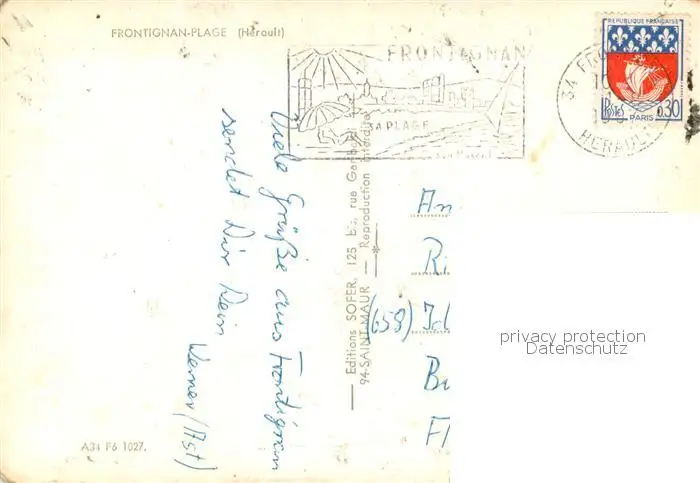 FRONTIGNAN-PLAGE (Hérault)
FRONTIGNAN
PLAGE
RÉPUBLIQUE FRANÇAISE
POSTES
0,30
PARIS
34 FRO
HERAUL
Viele Grüße aus Frontignan
sendet Dir Dein
Werner (Ast)
Editions SOFER, 125 bis, rue Gambetta
94-SAINT-MAUR — Reproduction interdite
An
Ri
(658)
Bu
Fl
privacy protection
Datenschutz
A34 F6 1027.